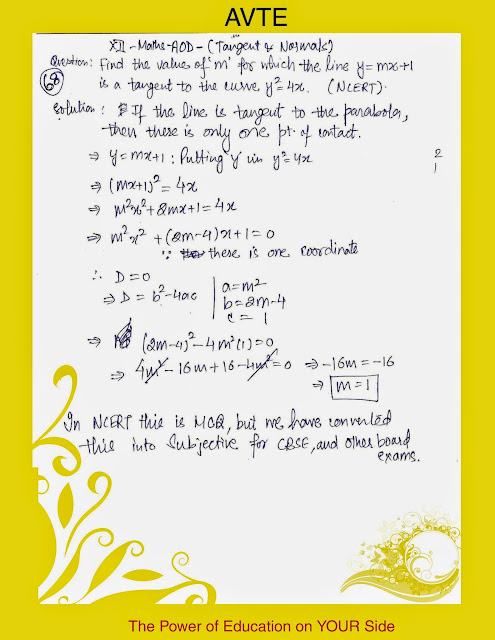 AVTE
XII - Maths - AOD - (Tangent & Normals)
Question: Find the value of 'm' for which the line y=mx+1
68
is a tangent to the curve y²=4x. (NCERT).
Solution : If the line is tangent to the parabola,
then there is only one pt. of contact.
⇒ y=mx+1 : Putting 'y' in y²=4x
2
1
⇒ (mx+1)² = 4x
⇒ m²x²+2mx+1=4x
⇒ m²x² + (2m-4)x+1=0
∵ there is one coordinate
∴ D=0
⇒ D = b²-4ac | a=m²
b=2m-4
c = 1
⇒ (2m-4)²-4m²(1)=0
⇒ 4m²-16m+16-4m²=0 ⇒ -16m=-16
⇒ m=1
In NCERT this is MCQ, but we have converted
this into Subjective for CBSE, and other board
exams.
The Power of Education on YOUR Side